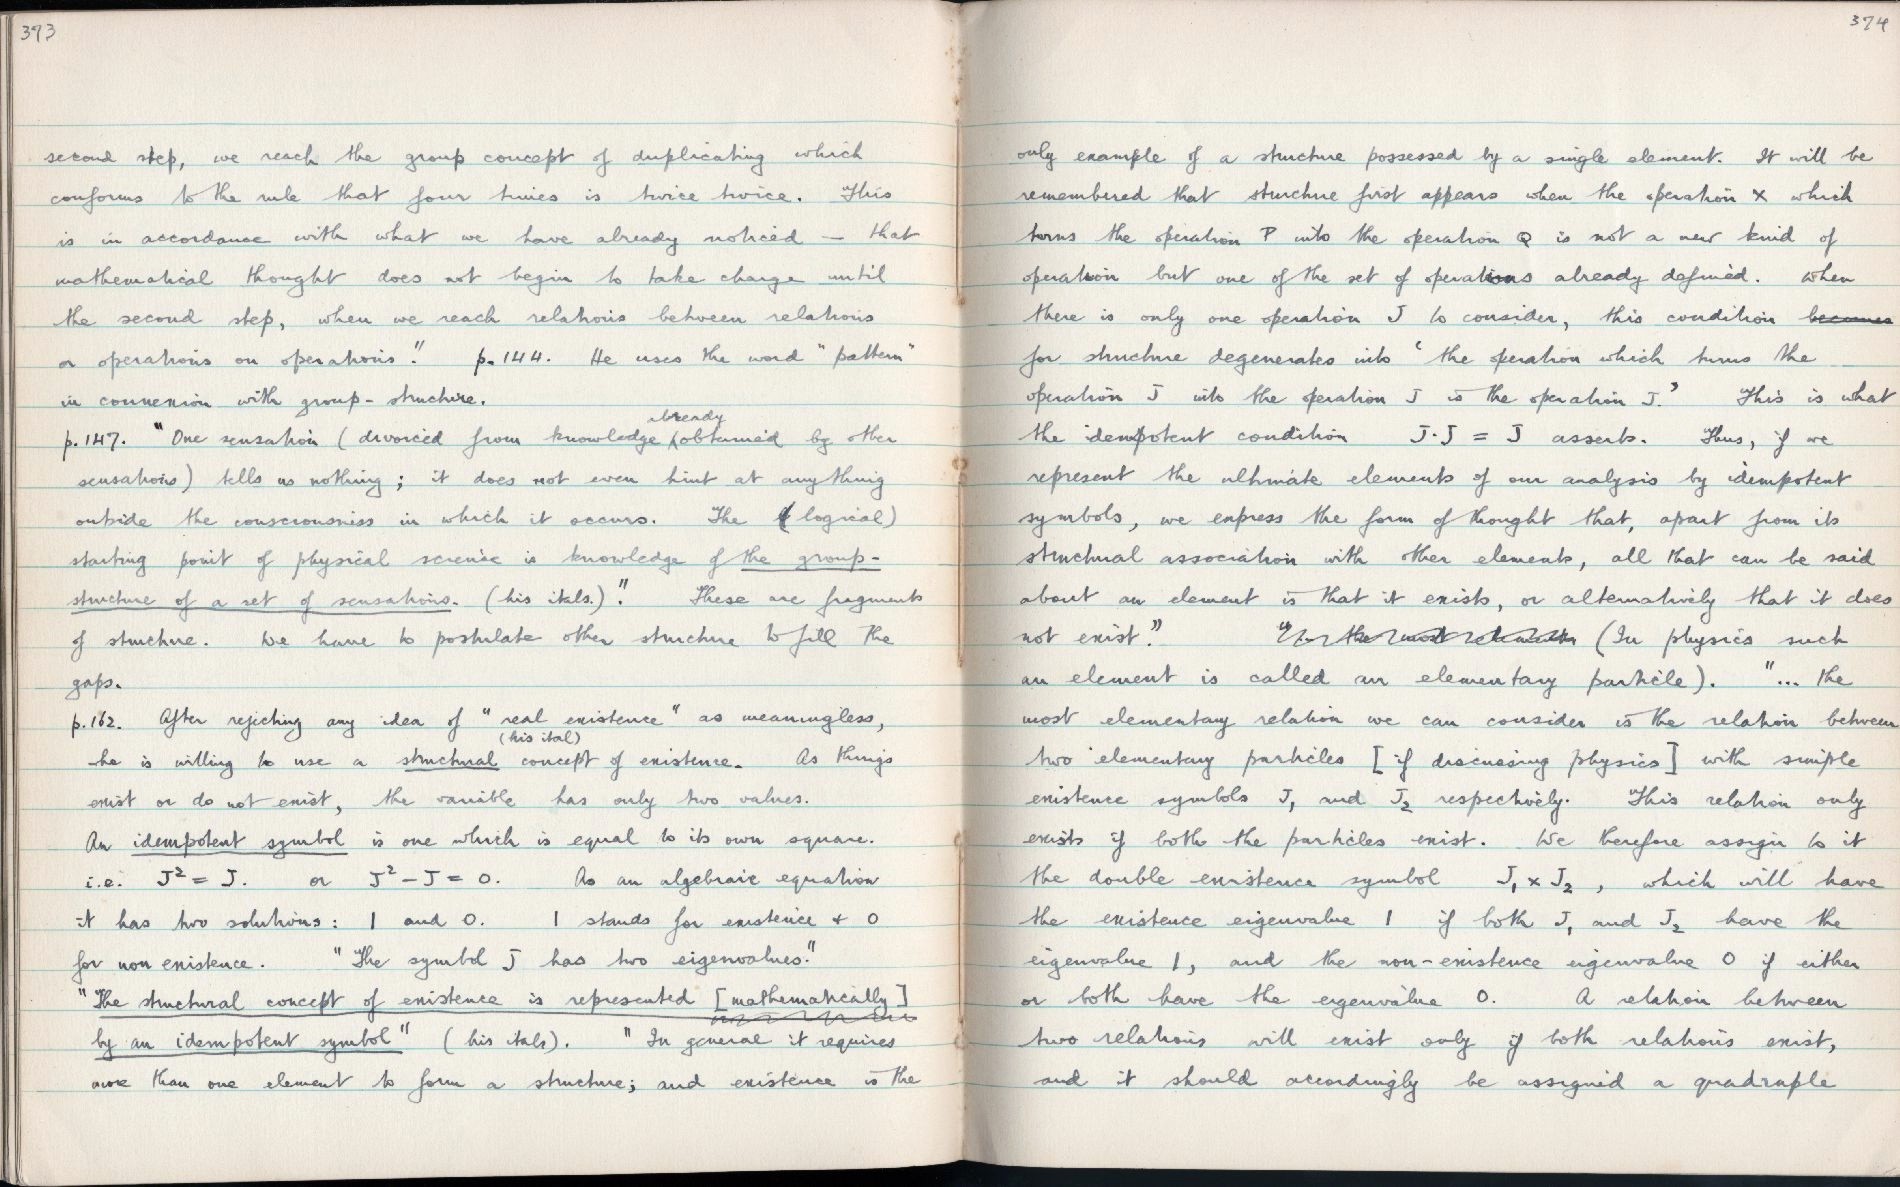 373
second step, we reach the group concept of duplicating which
conforms to the rule that four times is twice twice. This
is in accordance with what we have already noticed — that
mathematical thought does not begin to take charge until
the second step, when we reach relations between relations
or operations on operations." p. 144. He uses the word "pattern"
in connexion with group-structure.
already
p. 147. "One sensation (divorced from knowledge obtained by other
sensations) tells us nothing; it does not even hint at anything
outside the consciousness in which it occurs. The (logical)
starting point of physical science is knowledge of the group-
structure of a set of sensations. (his itals.)". These are fragments
of structure. We have to postulate other structure to fill the
gaps.
p. 162. After rejecting any idea of "real existence" as meaningless,
(his ital)
he is willing to use a structural concept of existence. As things
exist or do not exist, the variable has only two values.
An idempotent symbol is one which is equal to its own square.
i.e. J² = J. or J² – J = 0. As an algebraic equation
it has two solutions: 1 and 0. 1 stands for existence & 0
for non existence. "The symbol J has two eigenvalues."
"The structural concept of existence is represented [mathematically]
by an idempotent symbol" (his itals). "In general it requires
more than one element to form a structure; and existence is the
374
only example of a structure possessed by a single element. It will be
remembered that structure first appears when the operation x which
turns the operation P into the operation Q is not a new kind of
operation but one of the set of operations already defined. When
there is only one operation J to consider, this condition becomes
for structure degenerates into 'the operation which turns the
operation J into the operation J is the operation J.' This is what
the idempotent condition J·J = J asserts. Thus, if we
represent the ultimate elements of our analysis by idempotent
symbols, we express the form of thought that, apart from its
structural association with other elements, all that can be said
about an element is that it exists, or alternatively that it does
not exist." "... the most elementary (In physics such
an element is called an elementary particle). "... the
most elementary relation we can consider is the relation between
two elementary particles [if discussing physics] with simple
existence symbols J₁ and J₂ respectively. This relation only
exists if both the particles exist. We therefore assign to it
the double existence symbol J₁ x J₂, which will have
the existence eigenvalue 1 if both J₁ and J₂ have the
eigenvalue 1, and the non-existence eigenvalue 0 if either
or both have the eigenvalue 0. A relation between
two relations will exist only if both relations exist,
and it should accordingly be assigned a quadruple